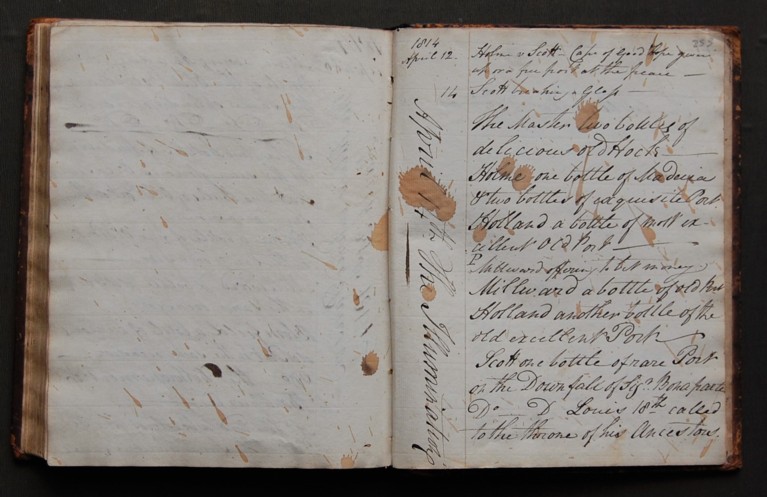 282
1814
April 12.
Holme v Scott - Cape of Good Hope given
up or a free port at the peace -
14 Scott breaking a Glass -
April 14th The Illumination
The Master two bottles of
delicious old Hock -
Holme one bottle of Madeira
& two bottles of exquisite Port
Holland a bottle of most ex-
cellent Old Port -
P Millward offering to bet money
Millward a bottle of old Port
Holland another bottle of the
old excellent Port -
Scott one bottle of rare Port
on the Downfall of Sigr. Bonaparte
Do - D Louis 18th called
to the throne of his Ancestors.